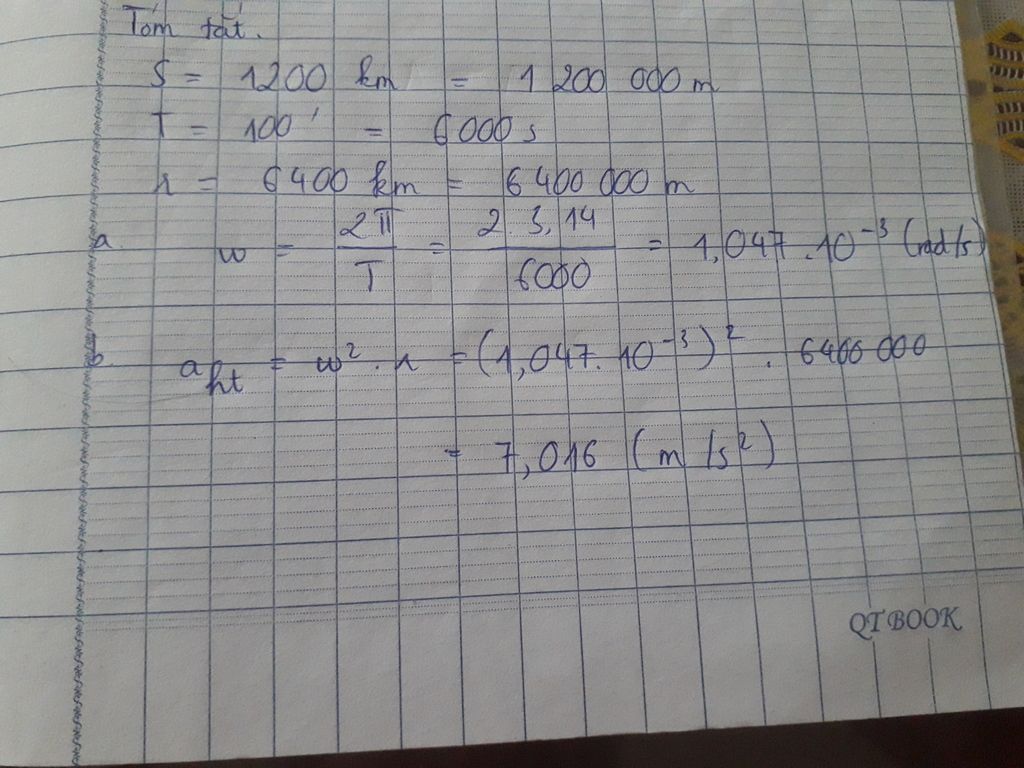 Tóm tắt.
S = 1200 km = 1 200 000 m
T = 100' = 6000 s
r = 6400 km = 6 400 000 m
a w = 2π/T = 2.3,14/6000 = 1,047.10⁻³ (rad/s)
b. aht = w².r = (1,047.10⁻³)². 6400 000
= 7,016 (m/s²)
QTBOOK